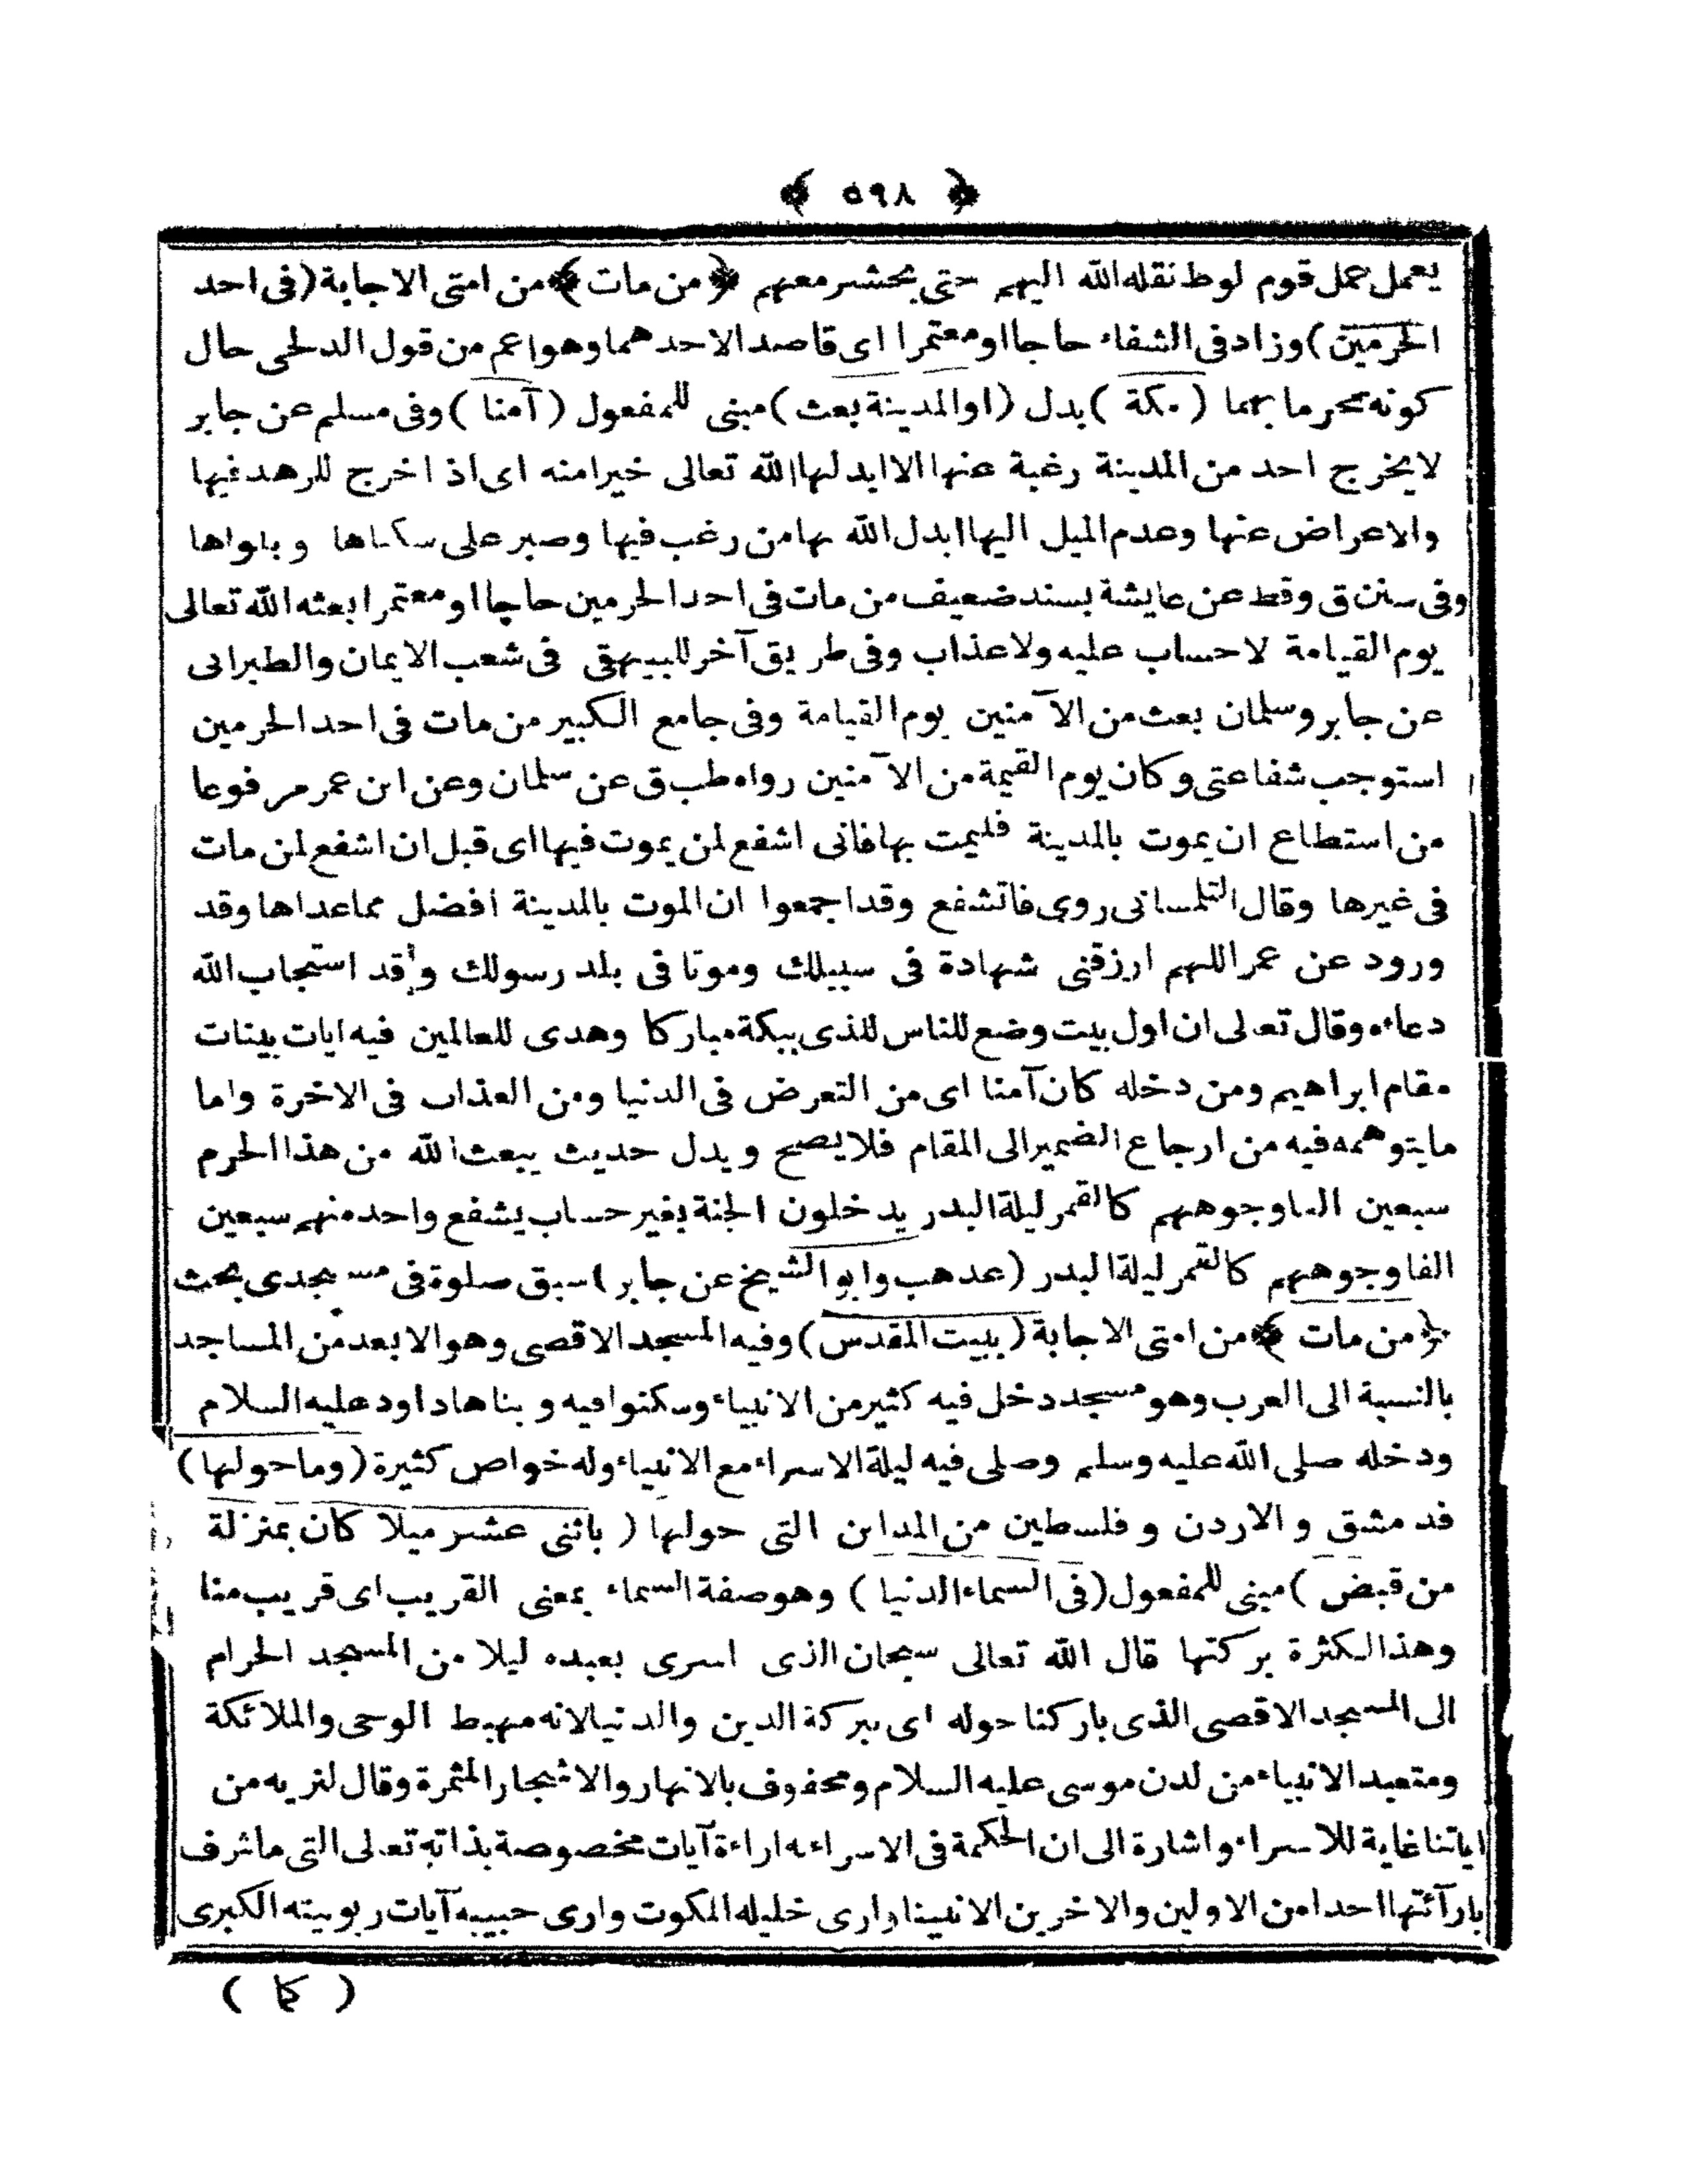 ﴿ ٥٩٨ ﴾
يعمل عمل قوم لوط نقله الله اليهم حتى يحشر معهم ﴿ من مات ﴾ من امتى الاجابة (فى احد
الحرمين) وزاد فى الشفاء حاجا او معتمرا اى قاصدا لاحدهما وهو اعم من قول الدلجى حال
كونه محرما بهما (مكة) بدل (او المدينة بعث) مبنى للمفعول (آمنا) وفى مسلم عن جابر
لا يخرج احد من المدينة رغبة عنها الا ابدلها الله تعالى خيرا منه اى اذ اخرج للزهد فيها
والاعراض عنها وعدم الميل اليها ابدل الله بها من رغب فيها وصبر على سكناها وبلواها
وفى سنن ق وقط عن عايشة بسند ضعيف من مات فى احد الحرمين حاجا او معتمرا بعثه الله تعالى
يوم القيامة لا حساب عليه ولا عذاب وفى طريق آخر للبيهقى فى شعب الايمان والطبرانى
عن جابر وسلمان بعث من الآمنين يوم القيامة وفى جامع الكبير من مات فى احد الحرمين
استوجب شفاعتى وكان يوم القيمة من الآمنين رواه طب ق عن سلمان وعن ابن عمر مرفوعا
من استطاع ان يموت بالمدينة فليمت بها فانى اشفع لمن يموت فيها اى قبل ان اشفع لمن مات
فى غيرها وقال التلمسانى روى فاتشفع وقد اجمعوا ان الموت بالمدينة افضل مما عداها وقد
ورود عن عمر اللهم ارزقنى شهادة فى سبيلك وموتا فى بلد رسولك وقد استجاب الله
دعاءه وقال تعالى ان اول بيت وضع للناس للذى ببكة مباركا وهدى للعالمين فيه ايات بينات
مقام ابراهيم ومن دخله كان آمنا اى من التعرض فى الدنيا ومن العذاب فى الاخرة واما
مايتوهمه فيه من ارجاع الضمير الى المقام فلا يصح ويدل حديث يبعث الله من هذا الحرم
سبعين الفا وجوههم كالقمر ليلة البدر يدخلون الجنة بغير حساب يشفع واحد منهم سبعين
الفا وجوههم كالقمر ليلة البدر (عد هب وابو الشيخ عن جابر) سبق صلوة فى مسجدى بحث
﴿ من مات ﴾ من امتى الاجابة (ببيت المقدس) وفيه المسجد الاقصى وهو الابعد من المساجد
بالنسبة الى العرب وهو مسجد دخل فيه كثير من الانبياء وسكنوا فيه وبناها داود عليه السلام
ودخله صلى الله عليه وسلم وصلى فيه ليلة الاسراء مع الانبياء وله خواص كثيرة (وما حولها)
فدمشق و الاردن و فلسطين من المداين التى حولها (باثنى عشر ميلا كان بمنزلة
من قبض) مبنى للمفعول (فى السماء الدنيا) وهو صفة السماء بمعنى القريب اى قريب منا
وهذا لكثرة بركتها قال الله تعالى سبحان الذى اسرى بعبده ليلا من المسجد الحرام
الى المسجد الاقصى الذى باركنا حوله اى ببركة الدين والدنيا لانه مهبط الوحى والملائكة
ومتعبد الانبياء من لدن موسى عليه السلام ومحفوف بالانهار والاشجار المثمرة وقال لنريه من
اياتنا غاية للاسراء واشارة الى ان الحكمة فى الاسراء به اراءة آيات مخصوصة بذاته تعالى التى ما شرف
بارآئتها احدا من الاولين والاخرين الا نبينا وارى خليله الملكوت وارى حبيبه آيات ربوبيته الكبرى
( كما )